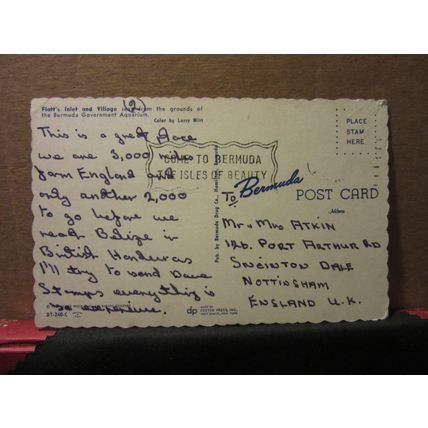 Flatt's Inlet and Village seen from the grounds of
the Bermuda Government Aquarium.
Color by Larry Witt
(2)
This is a great place
we are 3,000 miles
from England and
only another 2,000
to go before we
reach Belize in
British Honduras
I'll try to send Dave
Stamps everything is
so expensive.
DT-240-C
COME TO BERMUDA
THE ISLES OF BEAUTY
Pub. by Bermuda Drug Co., Hamilton, Bermuda
dp
MADE BY
DEXTER PRESS, INC.
WEST NYACK, NEW YORK
PLACE
STAMP
HERE
Bermuda
POST CARD
Address
To
Mr & Mrs ATKIN
126. PORT ARTHUR RD
SNEINTON DALE
NOTTINGHAM
ENGLAND U.K.